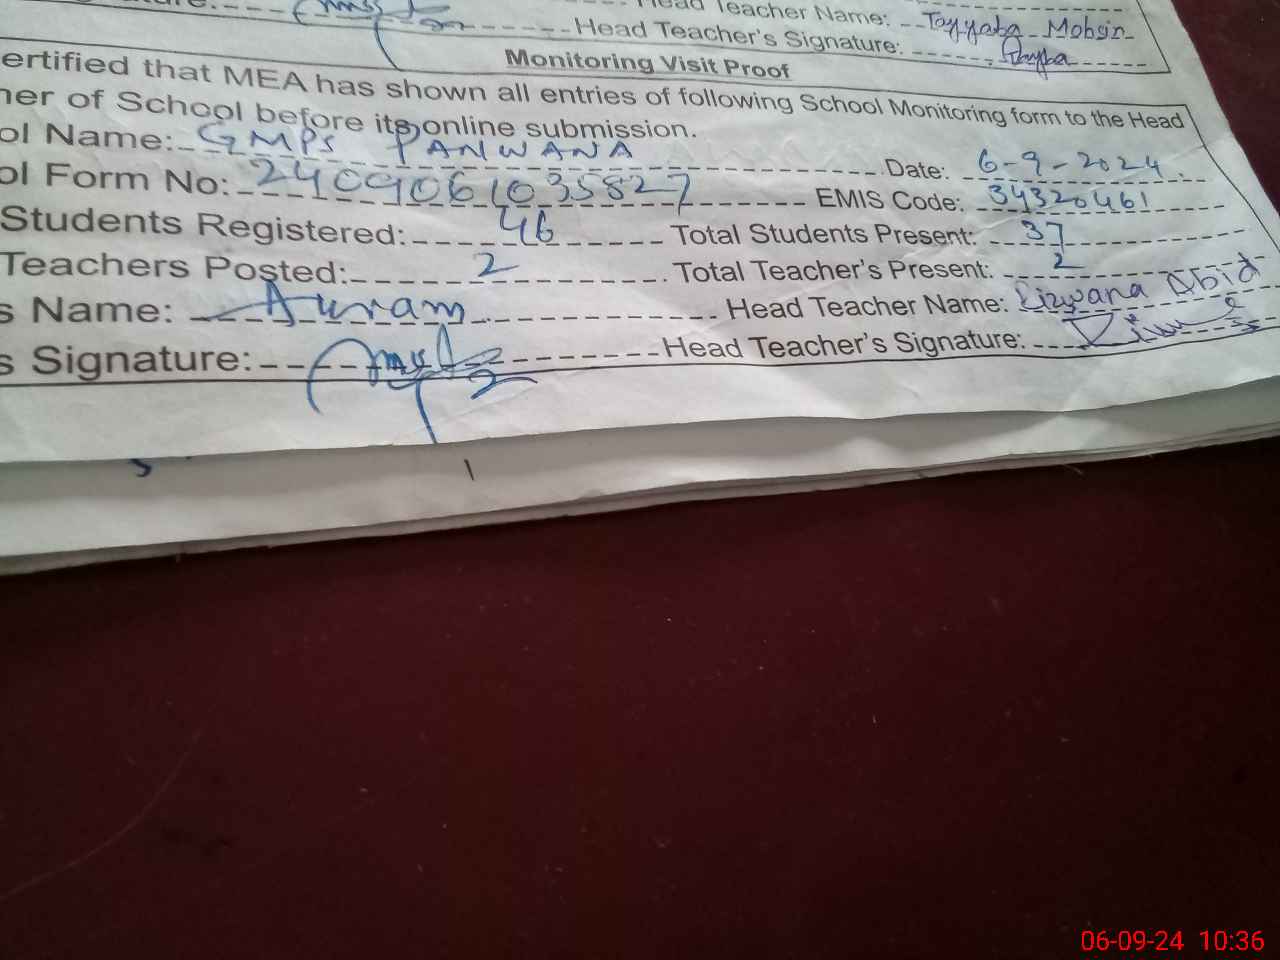 Head Teacher Name: Tayyaba Mohsin
Head Teacher's Signature: Tayyba
Monitoring Visit Proof
ertified that MEA has shown all entries of following School Monitoring form to the Head
her of School before its online submission.
ol Name: GMPS PANWANA Date: 6-9-2024
ol Form No: 2409061035827 EMIS Code: 34320461
Students Registered: 46 Total Students Present: 37
Teachers Posted: 2 Total Teacher's Present: 2
s Name: Head Teacher Name: Rizwana Abid
s Signature: Head Teacher's Signature:
06-09-24 10:36